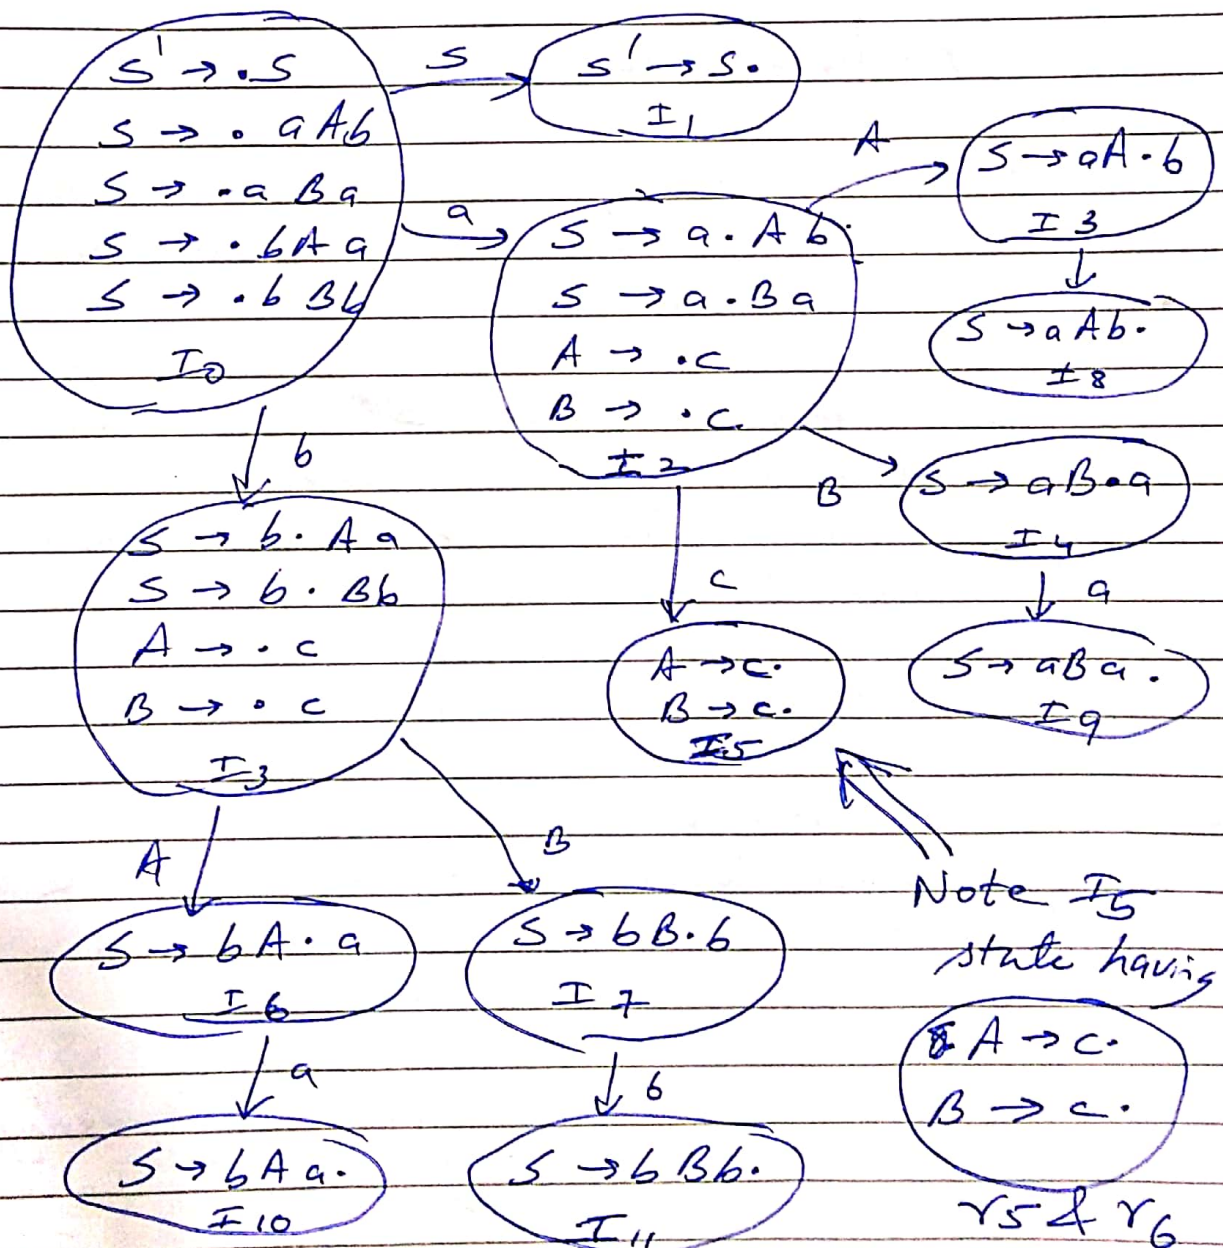 S' → .S
S → . aAb
S → .a Ba
S → .bAa
S → .b Bb
I0
S
S' → S.
I1
a
S → a.Ab
S → a.Ba
A → .c
B → .c
I2
A
S → aA.b
I3
S → aAb.
I8
B
S → aB.a
I4
a
S → aBa.
I9
c
A → c.
B → c.
I5
b
S → b.Aa
S → b.Bb
A → .c
B → .c
I3
A
S → bA.a
I6
a
S → bAa.
I10
B
S → bB.b
I7
b
S → bBb.
I11
Note I5
state having
A → c.
B → c.
r5 & r6